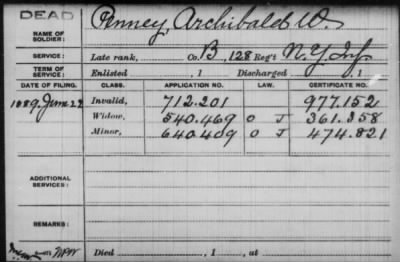 DEAD
NAME OF SOLDIER: Penney, Archibald W.
SERVICE: Late rank, Co. B, 128 Reg't N.Y. Inf.
TERM OF SERVICE: Enlisted , 1 Discharged , 1
DATE OF FILING. CLASS. APPLICATION NO. LAW. CERTIFICATE NO.
1889, June 22 Invalid, 712.201 977.152
Widow, 540.469 O J 361.358
Minor, 640.409 O J 474.821
ADDITIONAL SERVICES:
REMARKS:
Died , 1 , at